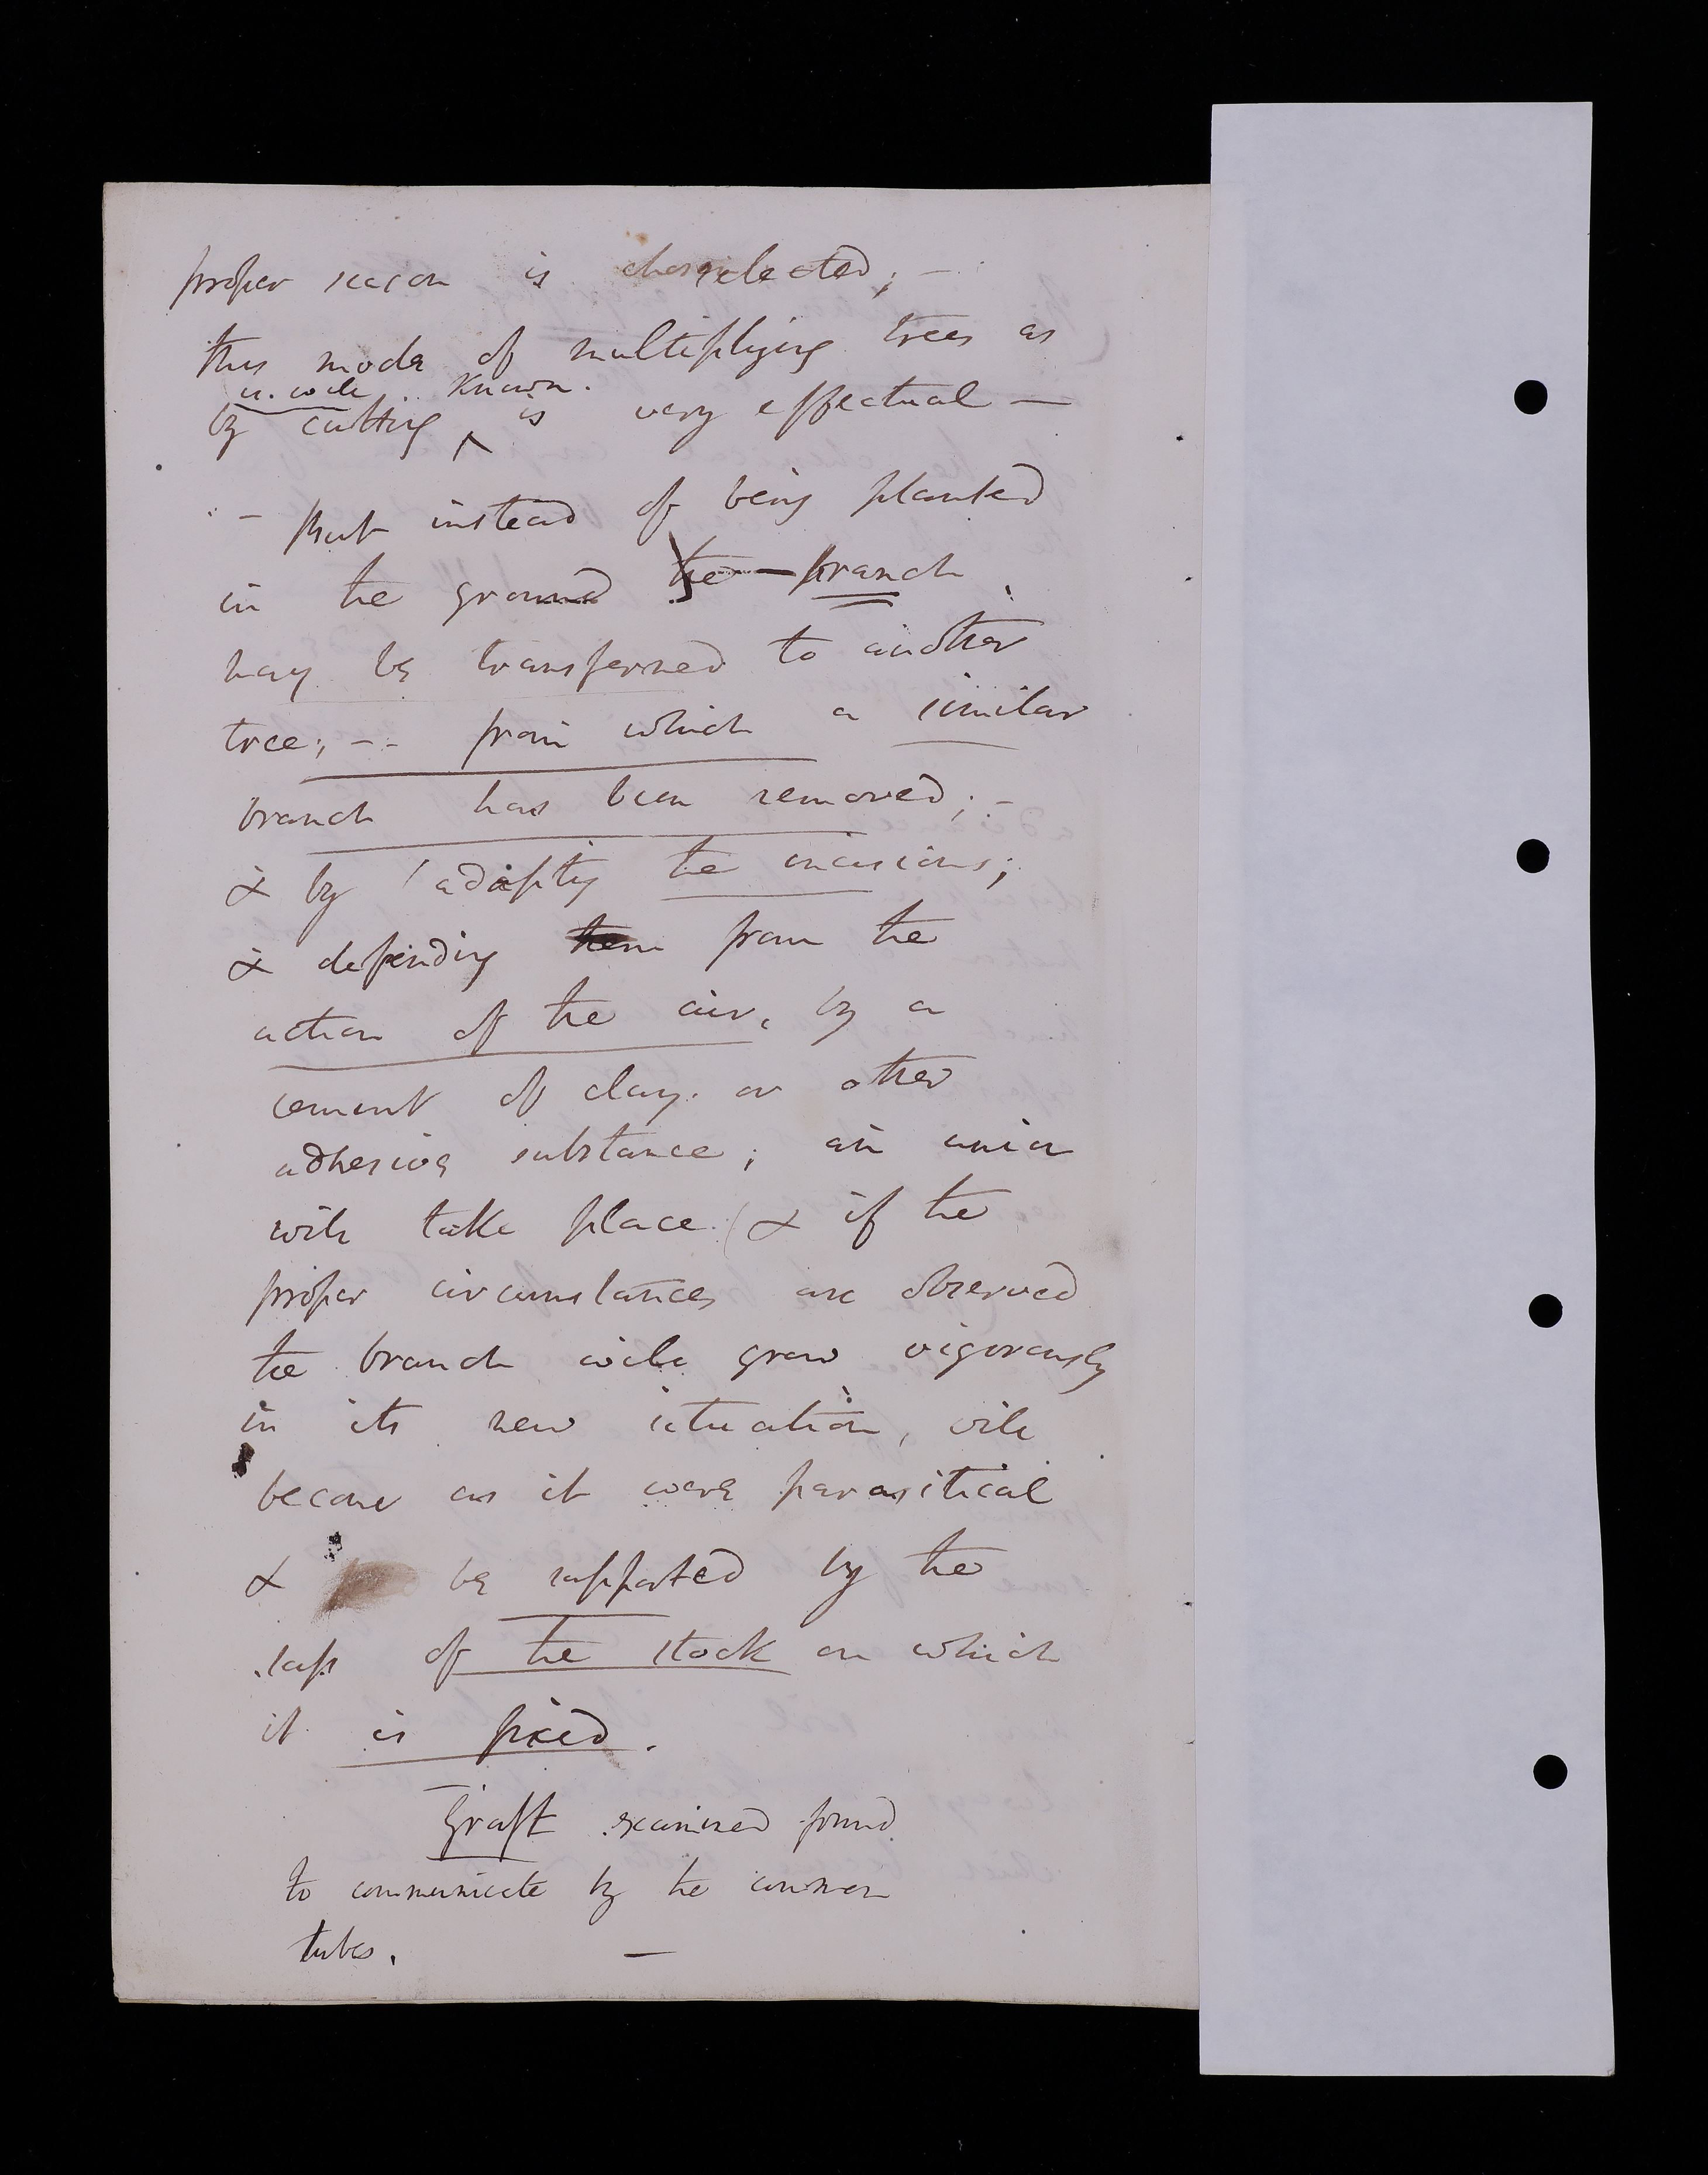 proper season is selected; -
this mode of multiplying trees as
is. well known.
by cutting ^ is very effectual —
- But instead of being planted
in the ground the — branch
may be transferred to another
tree; -- from which a similar
branch has been removed; -
& by adapting the incisions;
& defending them from the
action of the air, by a
cement of clay. or other
adhesive substance; an union
will take place. (& if the
proper circumstances are observed
the branch will grow vigorously
in its new situation, will
become as it were parasitical
& be supported by the
sap of the stock on which
it is fixed.
Graft examined found
to communicate by the common
tubes. —